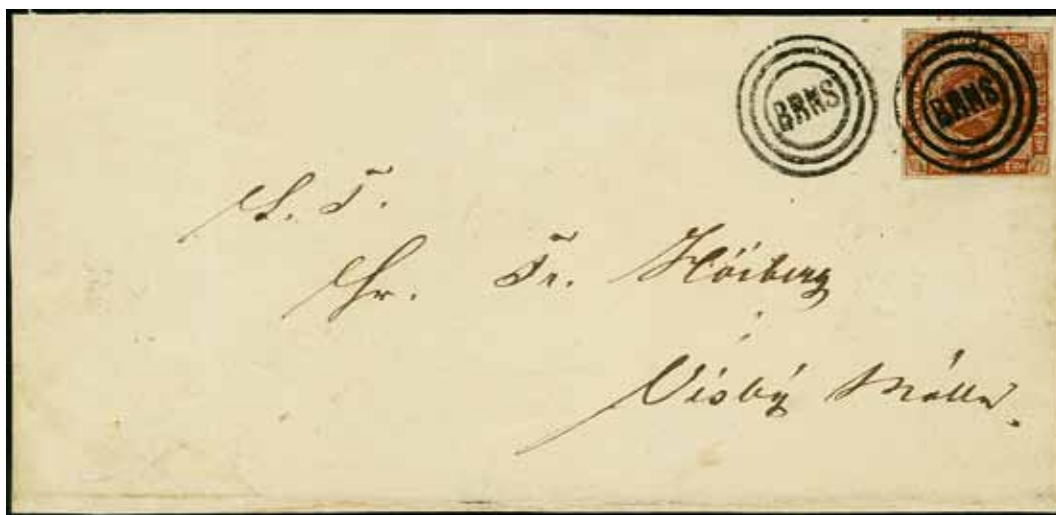 BRNS BRNS
S. T.
Hr. Fr. Höiberg
Visby Mölle.